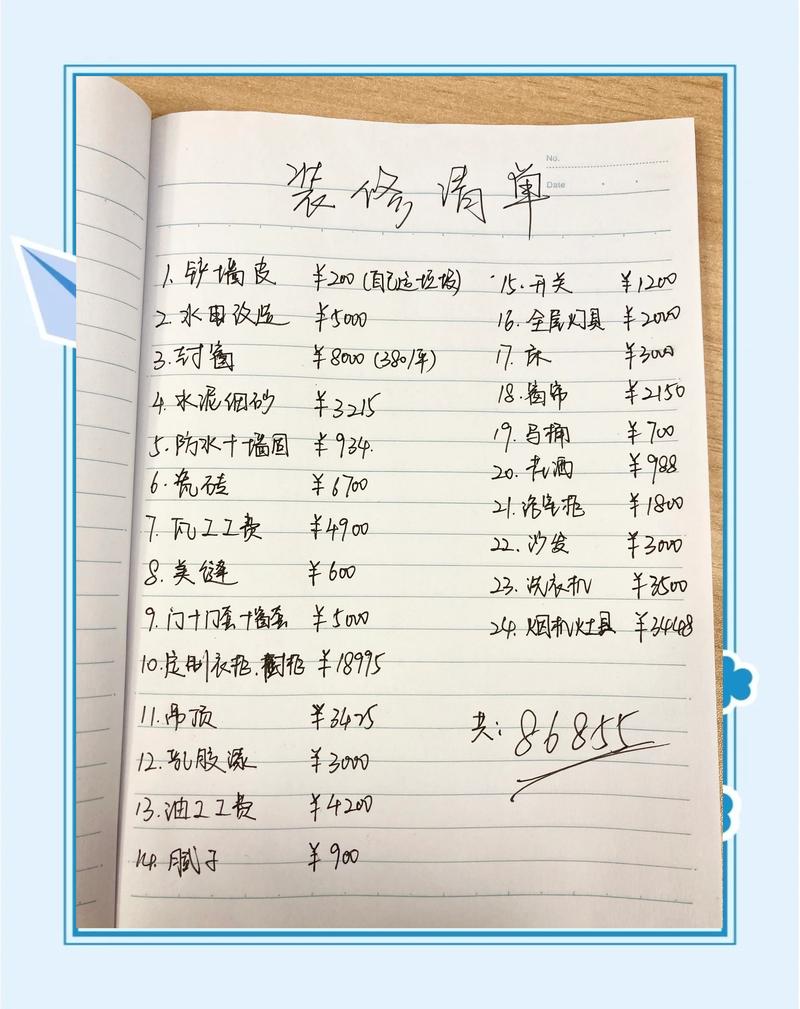 No.
Date
装修清单
1. 铲墙皮 ¥200 (自己运垃圾)
2. 水电改造 ¥5000
3. 封窗 ¥8000 (380/平)
4. 水泥细砂 ¥3215
5. 防水+墙固 ¥934.
6. 瓷砖 ¥6700
7. 瓦工工费 ¥4900
8. 美缝 ¥600
9. 门+门套+窗套 ¥5000
10. 定制衣柜、橱柜 ¥18995
11. 吊顶 ¥3425
12. 乳胶漆 ¥3000
13. 油工工费 ¥4200
14. 腻子 ¥900
15. 开关 ¥1200
16. 全屋灯具 ¥2000
17. 床 ¥3000
18. 窗帘 ¥2150
19. 马桶 ¥700
20. 花洒 ¥988
21. 浴室柜 ¥1800
22. 沙发 ¥3000
23. 洗衣机 ¥3500
24. 烟机灶具 ¥3448
共: 86855